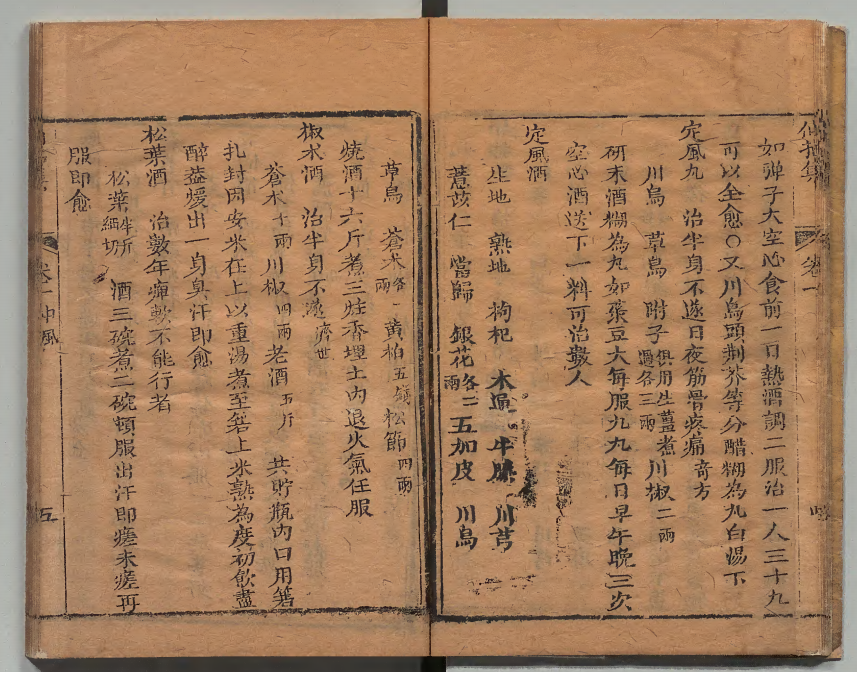 如彈子大空心食前一日熱酒調二服治一人三十九
可以全愈〇又川烏頭荆芥等分醋糊為丸白湯下
定風丸 治半身不遂日夜筋骨疼痛 奇方
川烏 草烏 附子 俱用生薑煮過各三兩 川椒 二兩
研末酒糊為丸如菉豆大每服九丸每日早午晚三次
空心酒送下一料可治數人
定風酒
生地 熟地 枸杞 木通 牛膝 川芎
薏苡仁 當歸 銀花 各二兩 五加皮 川烏
草烏 蒼朮 各一兩 黄柏 五錢 松節 四兩
燒酒十六斤煮三炷香埋土内退火氣任服
椒朮酒 治半身不遂 濟世
蒼朮 十兩 川椒 四兩 老酒 五斤 共貯瓶内口用箬
扎封固安米在上以重湯煮至箬上米熟為度初飲盡
醉蓋煖出一身臭汗即愈
松葉酒 治數年痺軟不能行者
松葉 半斤細切 酒三碗煮二碗頓服出汗即瘥未瘥再
服即愈
卷一
卷一中風
五